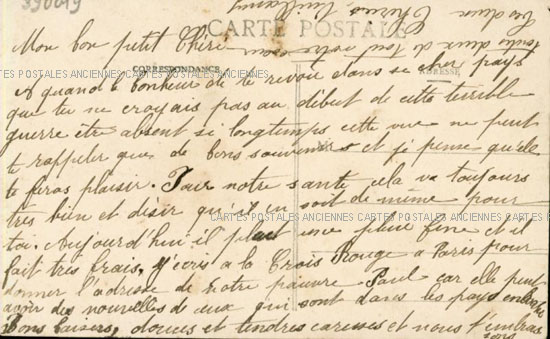 390019
CARTE POSTALE
CORRESPONDANCE
ADRESSE
Mon bon petit Chéri
A quand le bonheur de te revoir dans ce cher pays
CARTES POSTALES ANCIENNES CARTES POSTALES ANCIENNES CARTES POSTALES ANCIENNES CARTES POSTALES ANCIENNES
que tu ne croyais pas au début de cette terrible
guerre être absent si longtemps cette vue ne peut
te rappeler que de bons souvenirs et je pense qu'elle
te feras plaisir. Pour notre santé cela va toujours
très bien et désir qu'il en soit de même pour
CARTES POSTALES ANCIENNES CARTES POSTALES ANCIENNES CARTES POSTALES ANCIENNES CARTES POSTALES ANCIENNES
toi. Aujourd'hui il pleut une pluie fine et il
fait très frais. J'écris a la Croix Rouge a Paris pour
donner l'adresse de notre pauvre Paul car elle peut
avoir des nouvelles de ceux qui sont dans les pays envahis
Bons baisers, douces et tendres caresses et nous t'embrassons
tous deux de tout notre cœur